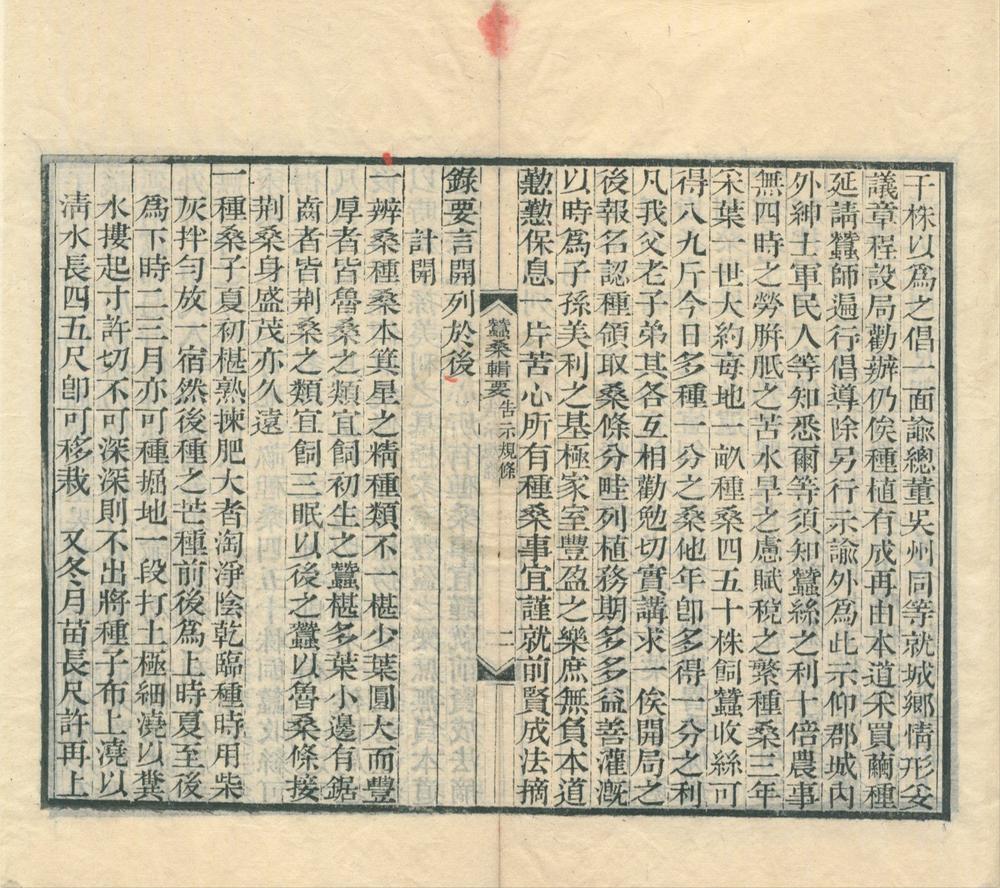 千株以爲之倡一面諭總董吳州同等就城鄉情形妥
議章程設局勸辦仍俟種植有成再由本道采買繭種
延請蠶師遍行倡導除另行示諭外爲此示仰郡城內
外紳士軍民人等知悉爾等須知蠶絲之利十倍農事
無四時之勞胼胝之苦水旱之慮賦稅之繁種桑三年
采葉一世大約每地一畝種桑四五十株飼蠶收絲可
得八九斤今日多種一分之桑他年卽多得一分之利
凡我父老子弟其各互相勸勉切實講求一俟開局之
後報名認種領取桑條分畦列植務期多多益善灌漑
以時爲子孫美利之基極家室豐盈之樂庶無負本道
懃懃保息一片苦心所有種桑事宜謹就前賢成法摘
蠶桑輯要 告示規條 二
錄要言開列於後
計開
一辨桑種桑本箕星之精種類不一椹少葉圓大而豐
厚者皆魯桑之類宜飼初生之蠶椹多葉小邊有鋸
齒者皆荆桑之類宜飼三眠以後之蠶以魯桑條接
荆桑身盛茂亦久遠
一種桑子夏初椹熟揀肥大者淘淨陰乾臨種時用柴
灰拌勻放一宿然後種之芒種前後爲上時夏至後
爲下時二三月亦可種掘地一段打土極細澆以糞
水摟起寸許切不可深深則不出將種子布上澆以
淸水長四五尺卽可移栽 又冬月苗長尺許再上